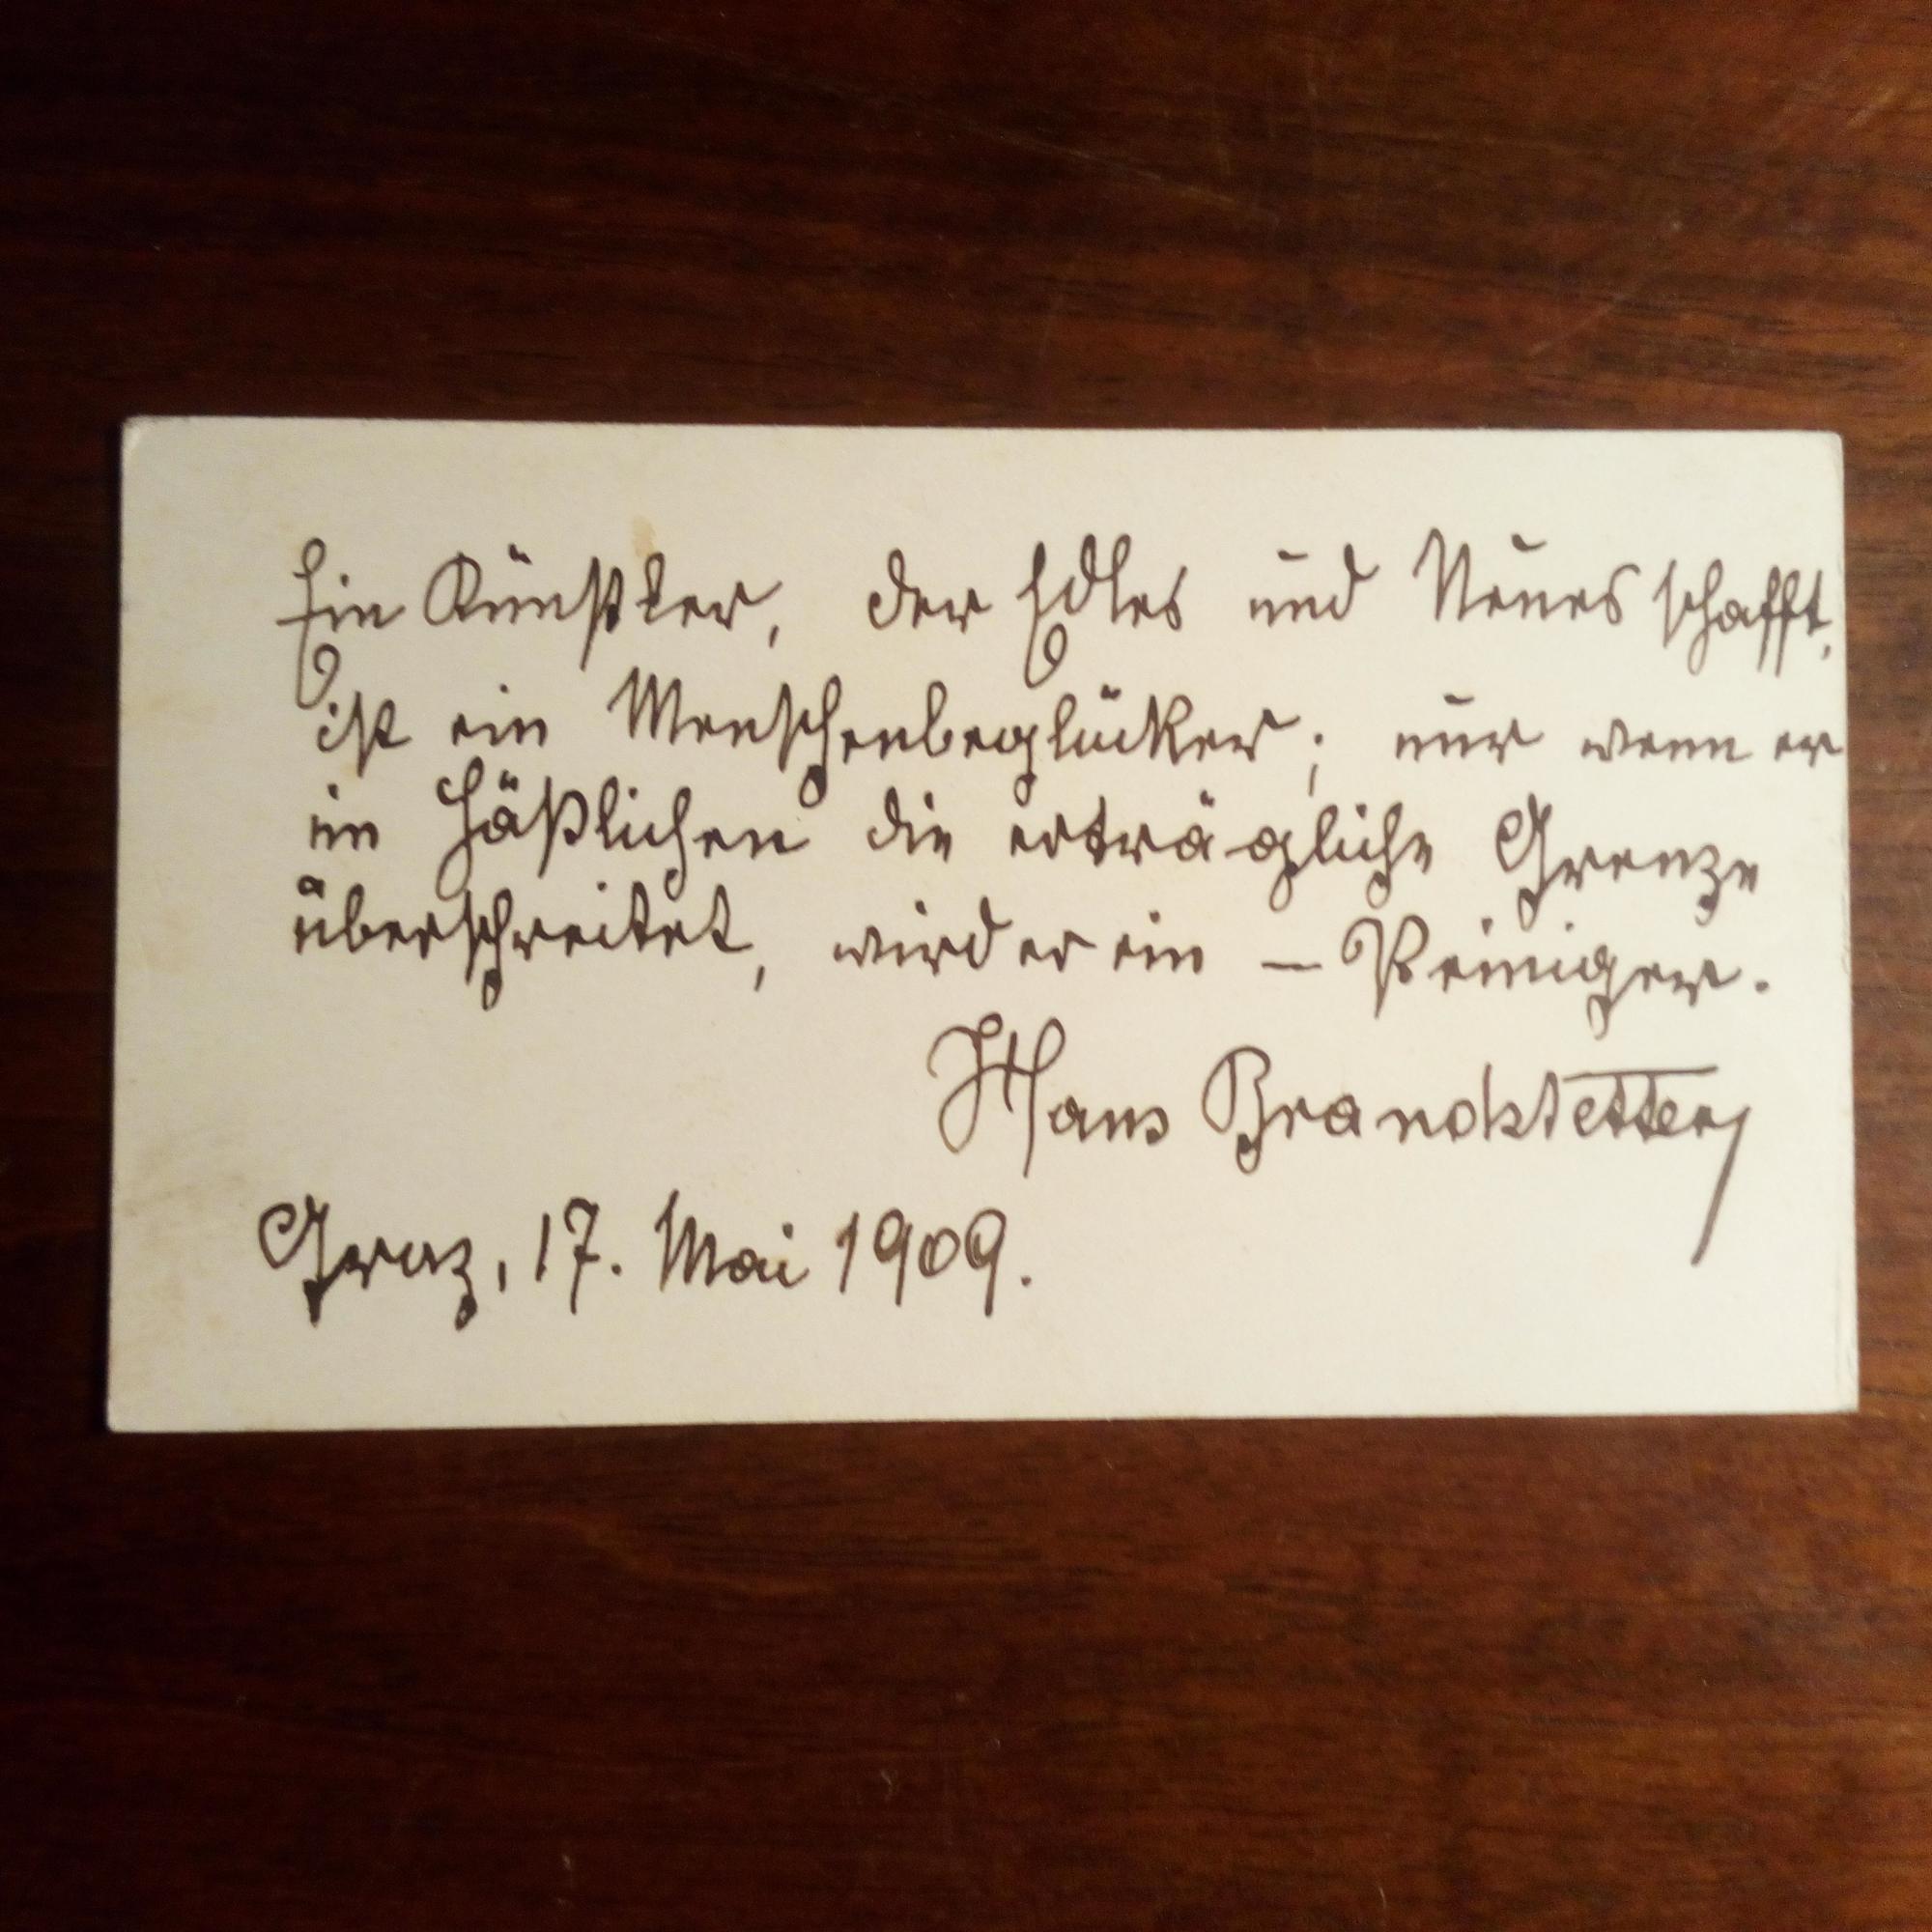 Ein Künstler, der Edles und Neues schafft,
ist ein Menschenbeglücker; nur wenn er
im Häßlichen die erträgliche Grenze
überschreitet, wird er ein – Peiniger.
Hans Brandstetter
Graz, 17. Mai 1909.